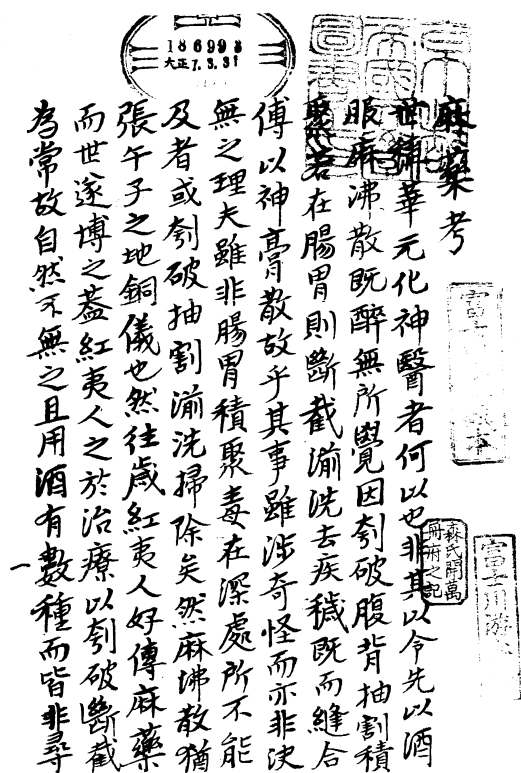 麻藥考
世稱華元化神醫者何以也非其以令先以酒
服麻沸散既醉無所覺因刳破腹背抽割積
聚若在腸胃則斷截湔洗去疾穢既而縫合
傅以神膏散故乎其事雖涉奇怪而亦非決
無之理夫雖非腸胃積聚毒在深處所不能
及者或刳破抽割湔洗掃除矣然麻沸散猶
張午子之地銅儀也然往歲紅夷人好傳麻藥
而世遂博之蓋紅夷人之於治療以刳破斷截
為常故自然不無之且用酒有數種而皆非尋
一
186993
大正7.3.31
森氏開萬
冊府之記
富士川游